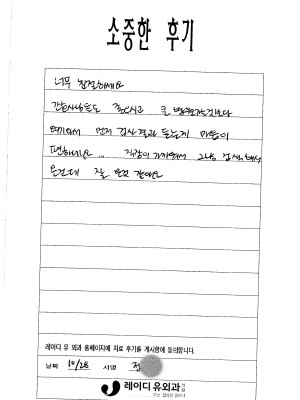 소중한 후기
너무 친절하세요
간호사님들도 좋으시고 큰 병원가는것보다
여기와서 먼저 검사결과 듣는게 마음이
편하네요 ... 직장이 가까워서 그냥 검사해봐서
온건데 잘 온것 같아요
레이디 유 외과 홈페이지에 치료 후기를 게시함에 동의합니다.
날짜 10/28 서명 정
레이디유외과